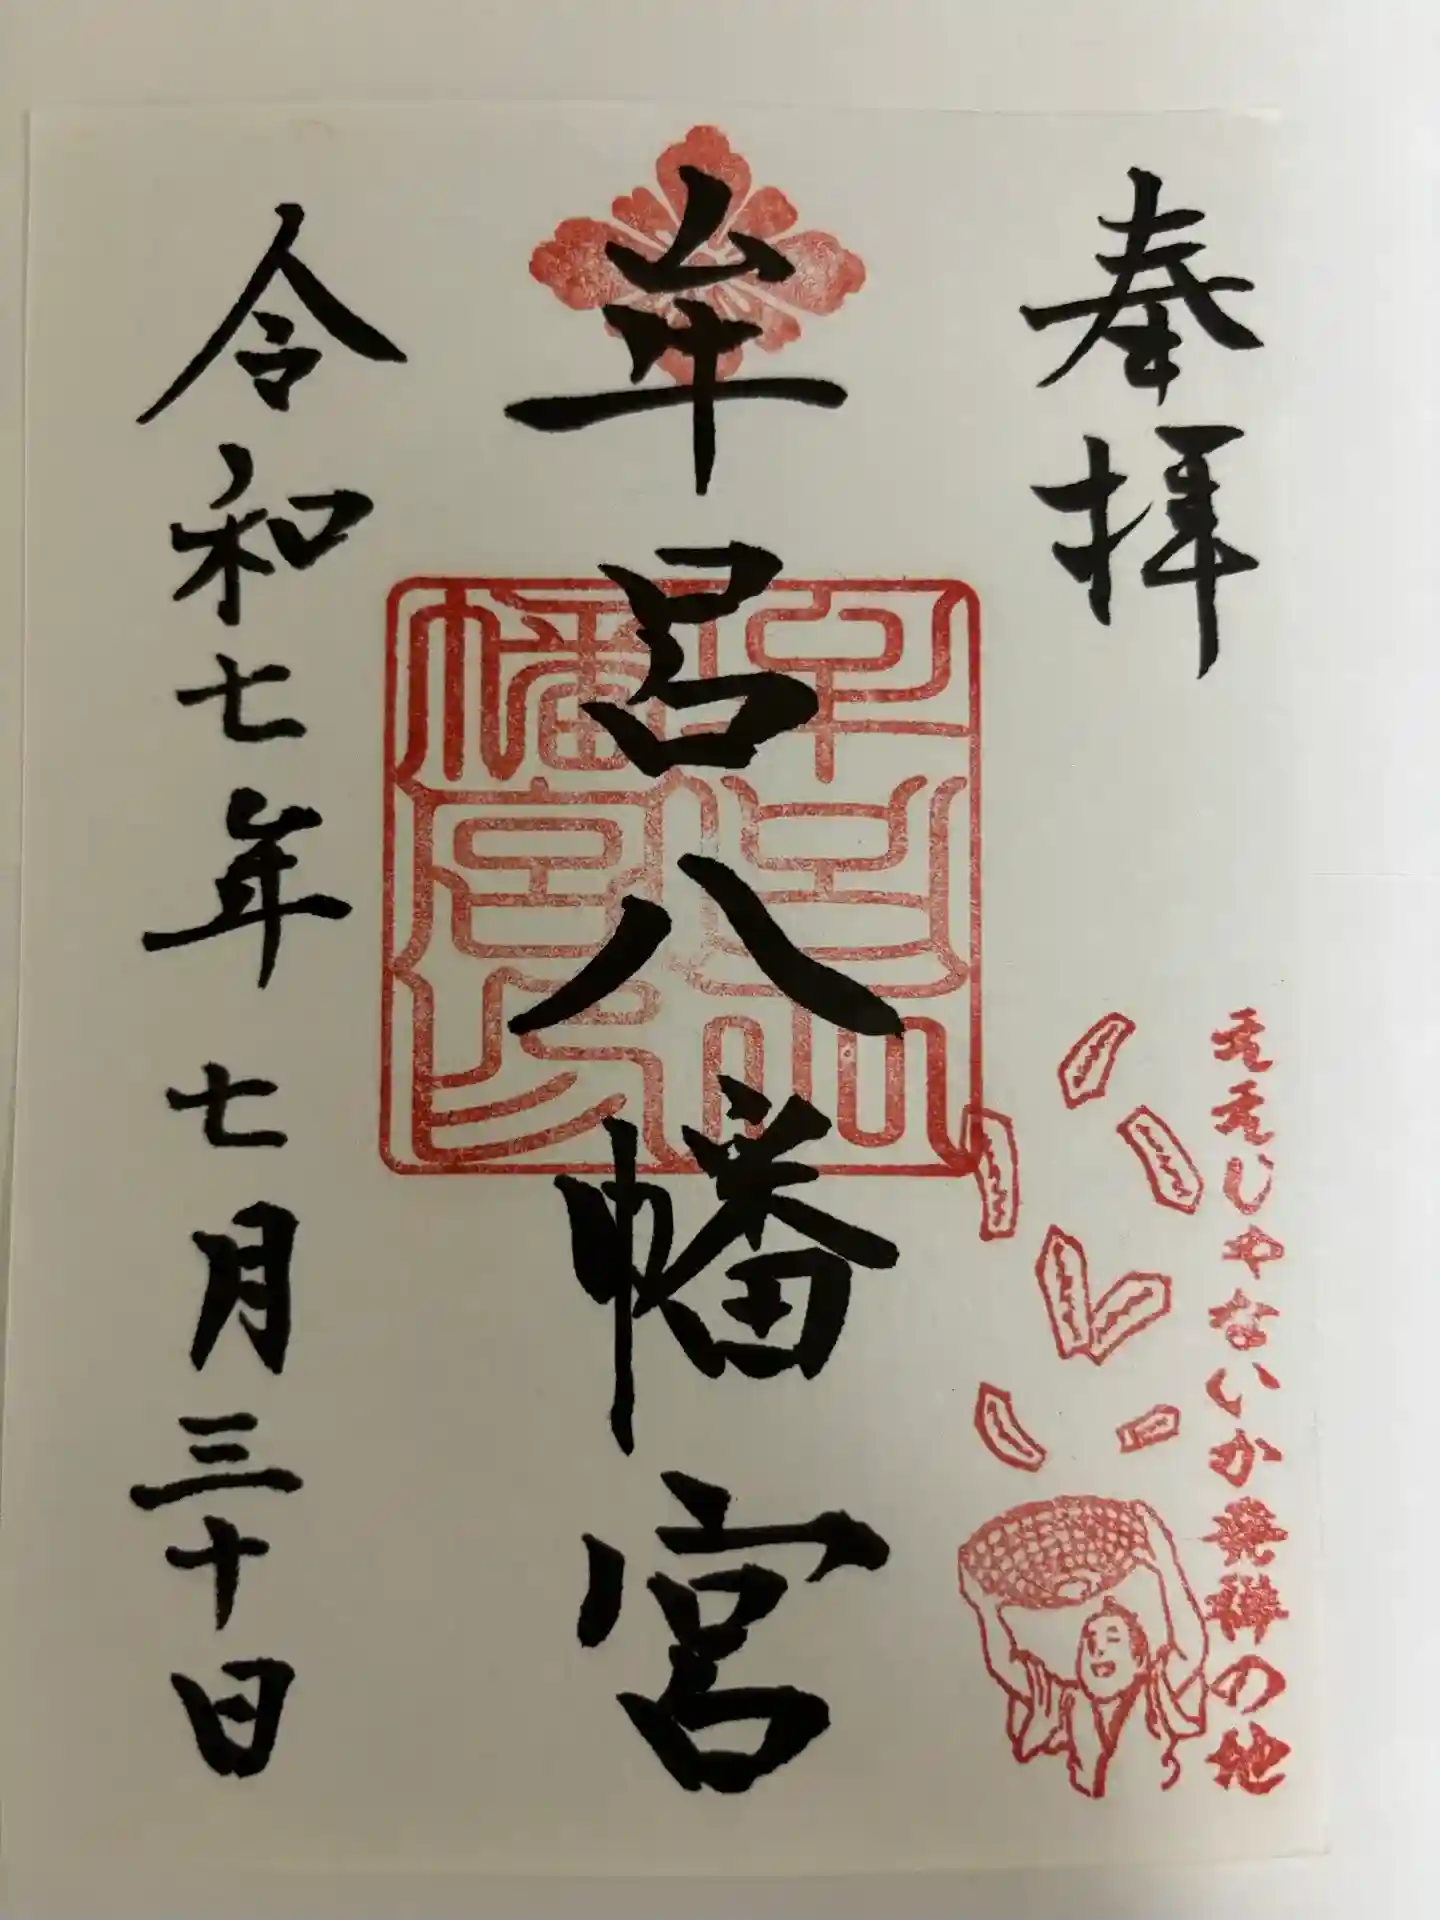 奉拝
ええじゃないか発祥の地
牟呂八幡宮
牟呂八幡宮印
令和七年七月三十日